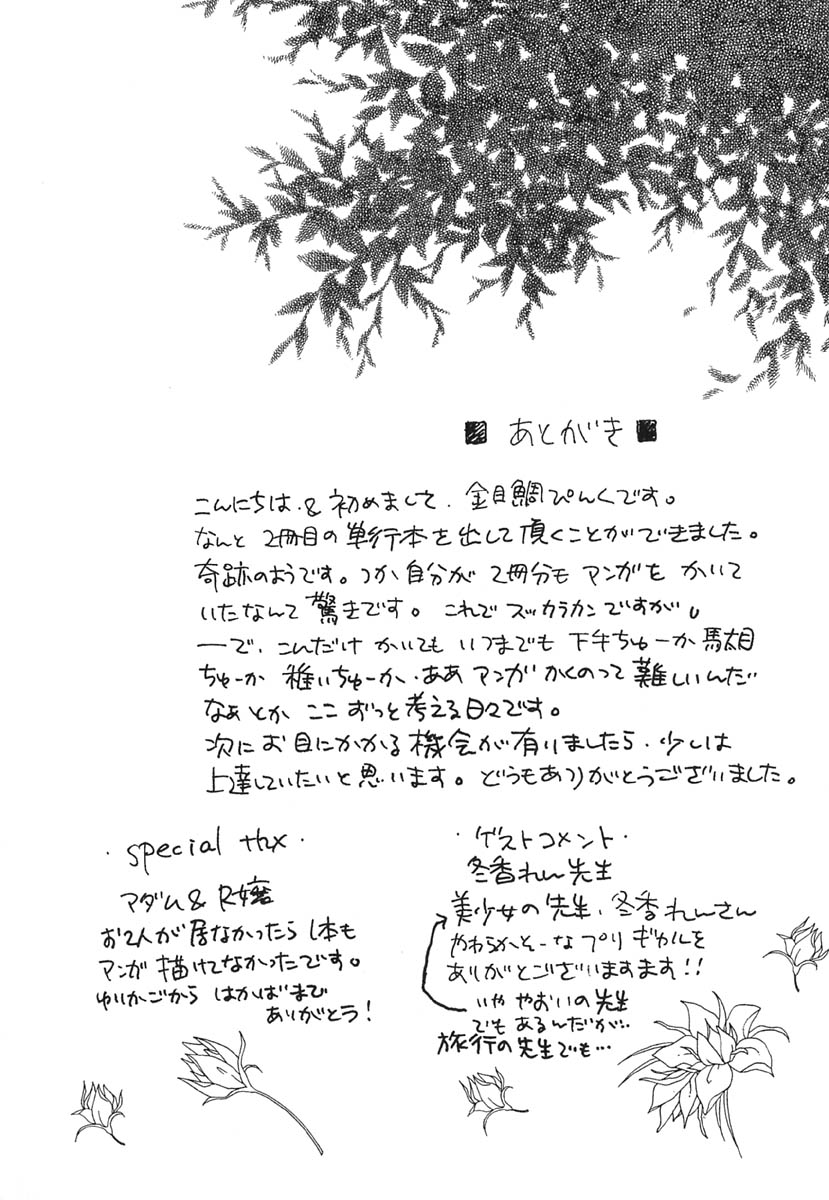 ■ あとがき ■
こんにちは.& 初めまして. 金目鯛ぴんくです。
なんと 2冊目の単行本を出して頂くことができました。
奇跡のようです。つか自分が 2冊分も マンガを かいて
いたなんて 驚きです。 これで スッカラカンですが。
ーで、こんだけ かいても いつまでも 下手ちゅーか 馬太目
ちゅーか 稚いちゅーか.ああ マンガ かくのって 難しいんだ
なぁとか ここ ずっと考える日々です。
次にお目にかかる機会が有りましたら. 少しは
上達していたいと思います。どうもありがとうございました。
・special thx・
マダム& R嬢
お2人が居なかったら 1本も
マンガ 描けてなかったです。
ゆりかごから はかばまで
ありがとう!
・ゲストコメント・
冬香れん先生
美少女の先生、冬香れんさん
やわらかそーな プリ ギャルを
ありがとございますます!!
いや やおいの先生
でも あるんだが…
旅行の先生でも…